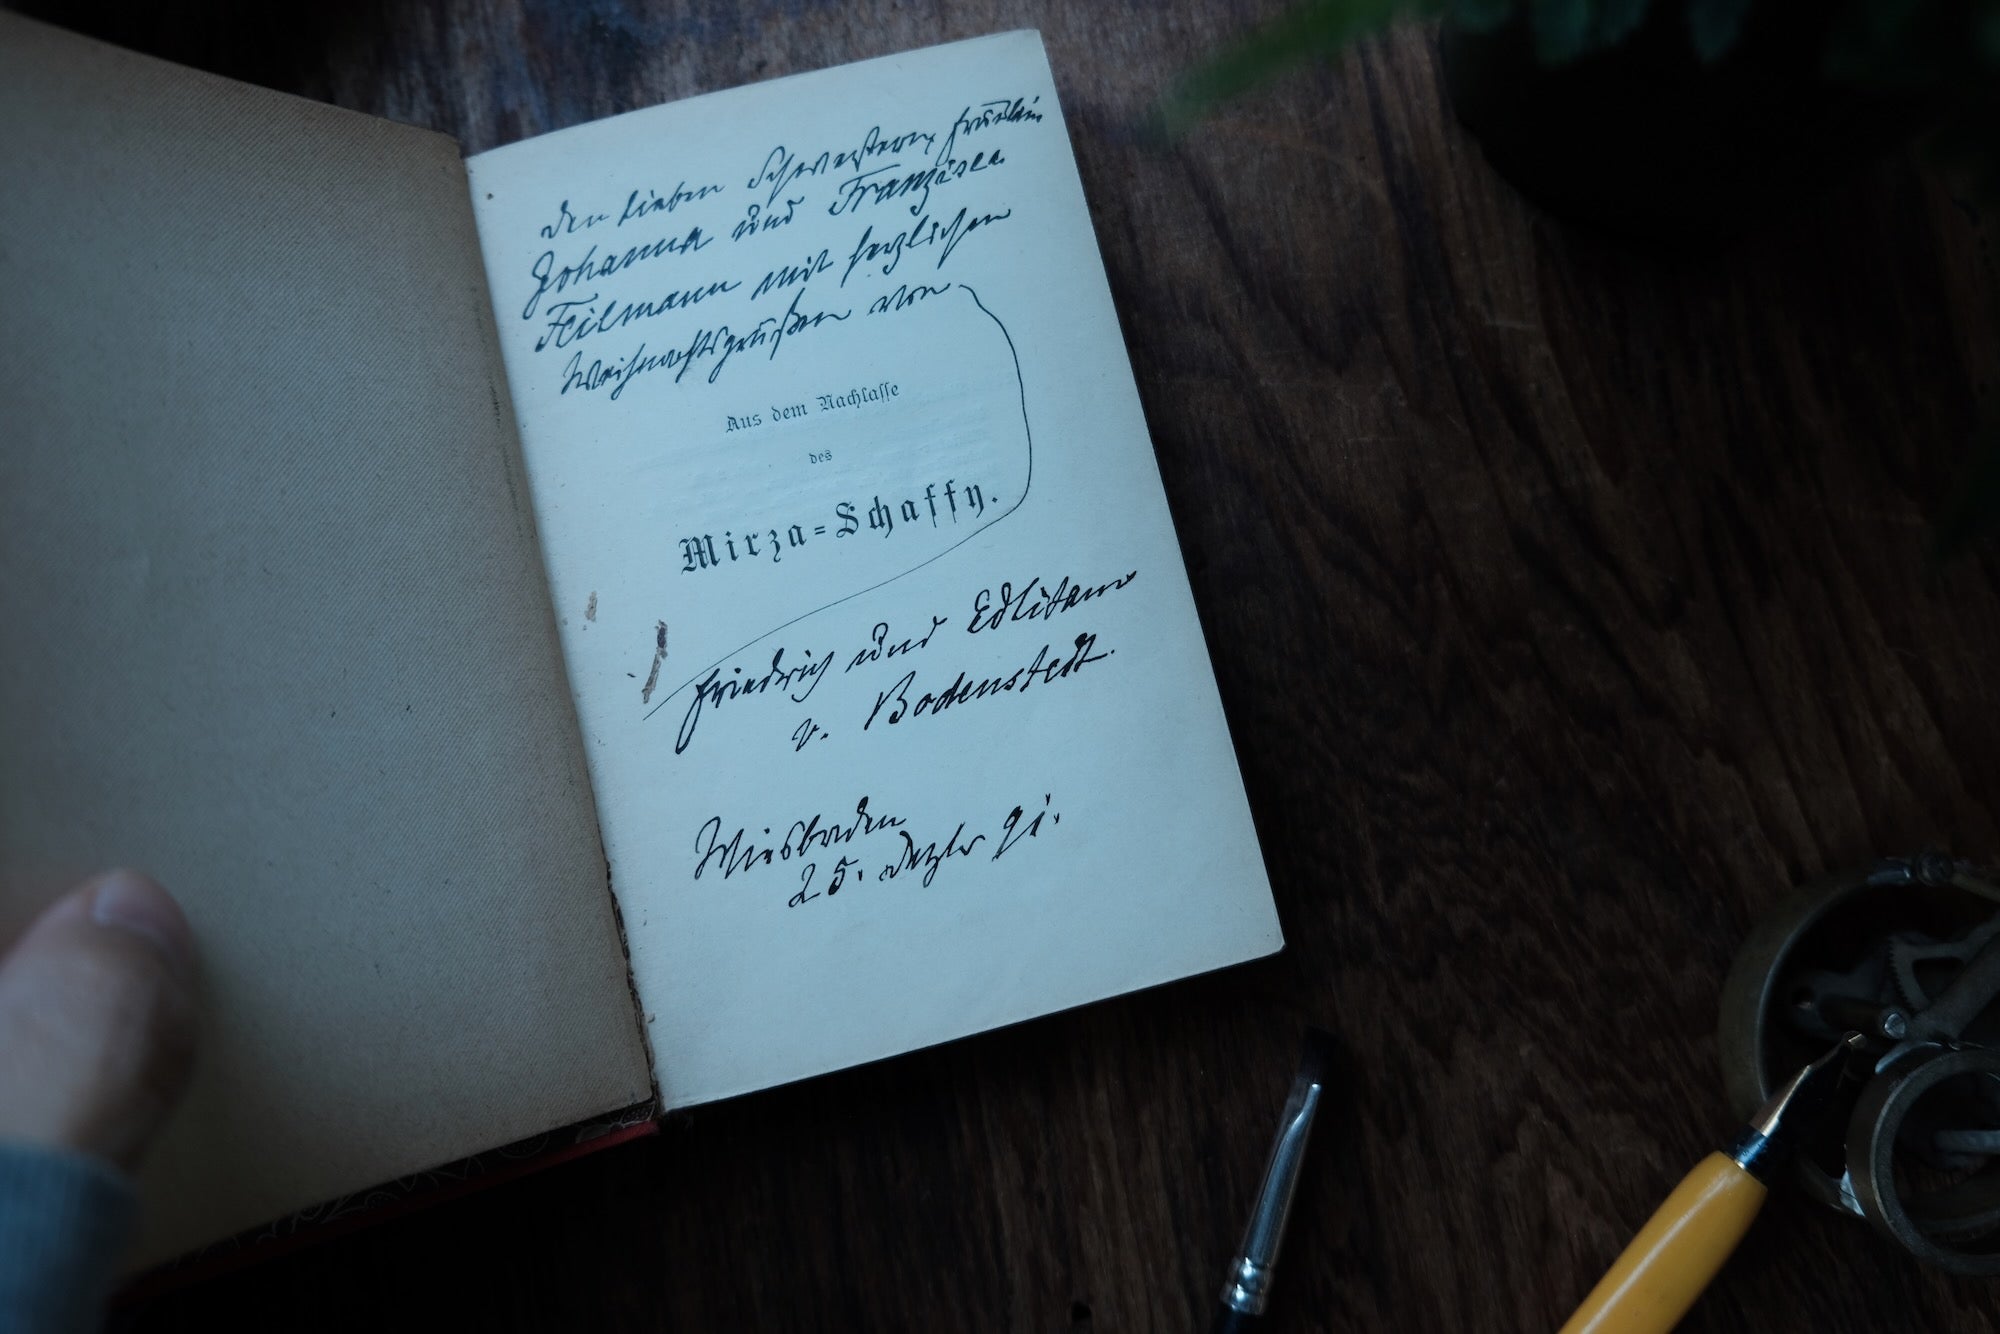 Den lieben Schwestern, Fräulein
Johanna und Franzisca
Heilmann mit herzlichen
Weihnachtsgrüßen von
Aus dem Nachlasse
des
Mirza-Schaffy.
Friedrich und Edlitam
v. Bodenstedt.
Wiesbaden
25. Dezbr 91.